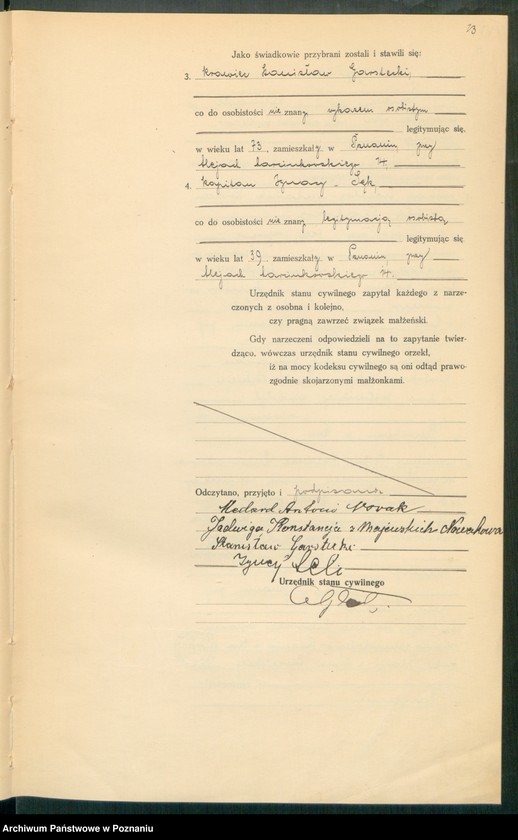 Jako świadkowie przybrani zostali i stawili się:
3. Krawiec Stanisław Garstecki,
co do osobistości nie znany wykazem osobistym
legitymując się.
w wieku lat 73, zamieszkały w Poznaniu, przy
Alejach
4. Kapitan Ignacy
co do osobistości nie znany legitymacją osobistą
legitymując się
w wieku lat 39, zamieszkały w Poznaniu, przy
Alejach
Urzędnik stanu cywilnego zapytał każdego z narze-
czonych z osobna i kolejno,
czy pragną zawrzeć związek małżeński.
Gdy narzeczeni odpowiedzieli na to zapytanie twier-
dząco, wówczas urzędnik stanu cywilnego orzekł,
iż na mocy kodeksu cywilnego są oni odtąd prawo-
zgodnie skojarzonymi małżonkami.
Odczytano, przyjęto i podpisano
Medard Antoni Nowak
Jadwiga Konstancja z Majewskich Nowakowa
Stanisław Garstecki
Ignacy
Urzędnik stanu cywilnego
Archiwum Państwowe w Poznaniu